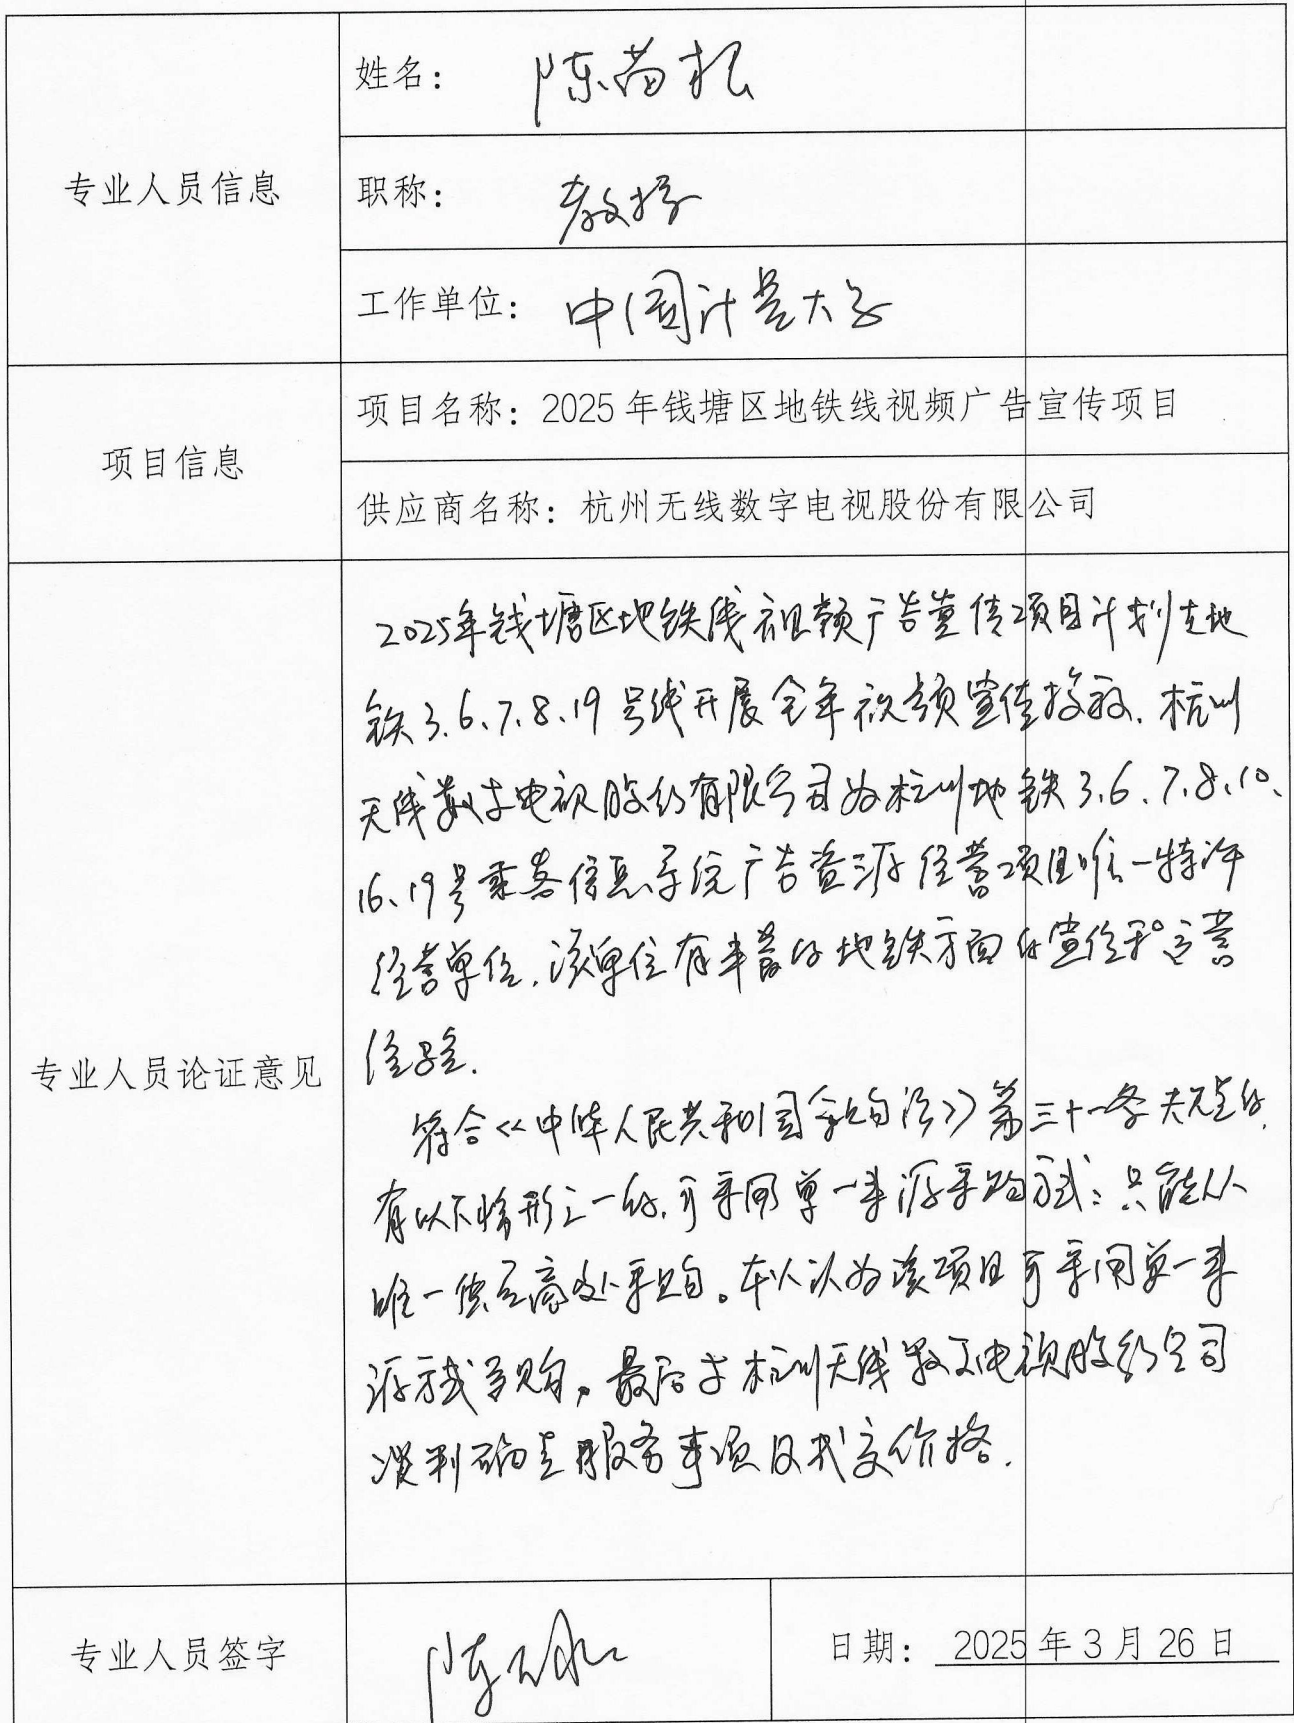 专业人员信息
姓名：陈苗根
职称：教授
工作单位：中国计量大学
项目信息
项目名称：2025年钱塘区地铁线视频广告宣传项目
供应商名称：杭州无线数字电视股份有限公司
专业人员论证意见
2025年钱塘区地铁线视频广告宣传项目计划在地
铁3、6、7、8、19号线开展全年视频宣传投放．杭州
无线数字电视股份有限公司为杭州地铁3、6、7、8、10、
16、19号乘客信息系统广告资源经营项目唯一特许
经营单位．该单位有丰富的地铁方面的宣传和运营
经验．
符合《中华人民共和国采购法》第三十一条规定的，
有以下情形之一的，可采用单一来源采购方式：只能从
唯一供应商处采购。本人认为该项目可采用单一来
源方式采购，最后与杭州无线数字电视股份公司
谈判确定服务事项及成交价格．
专业人员签字
日期：2025年3月26日